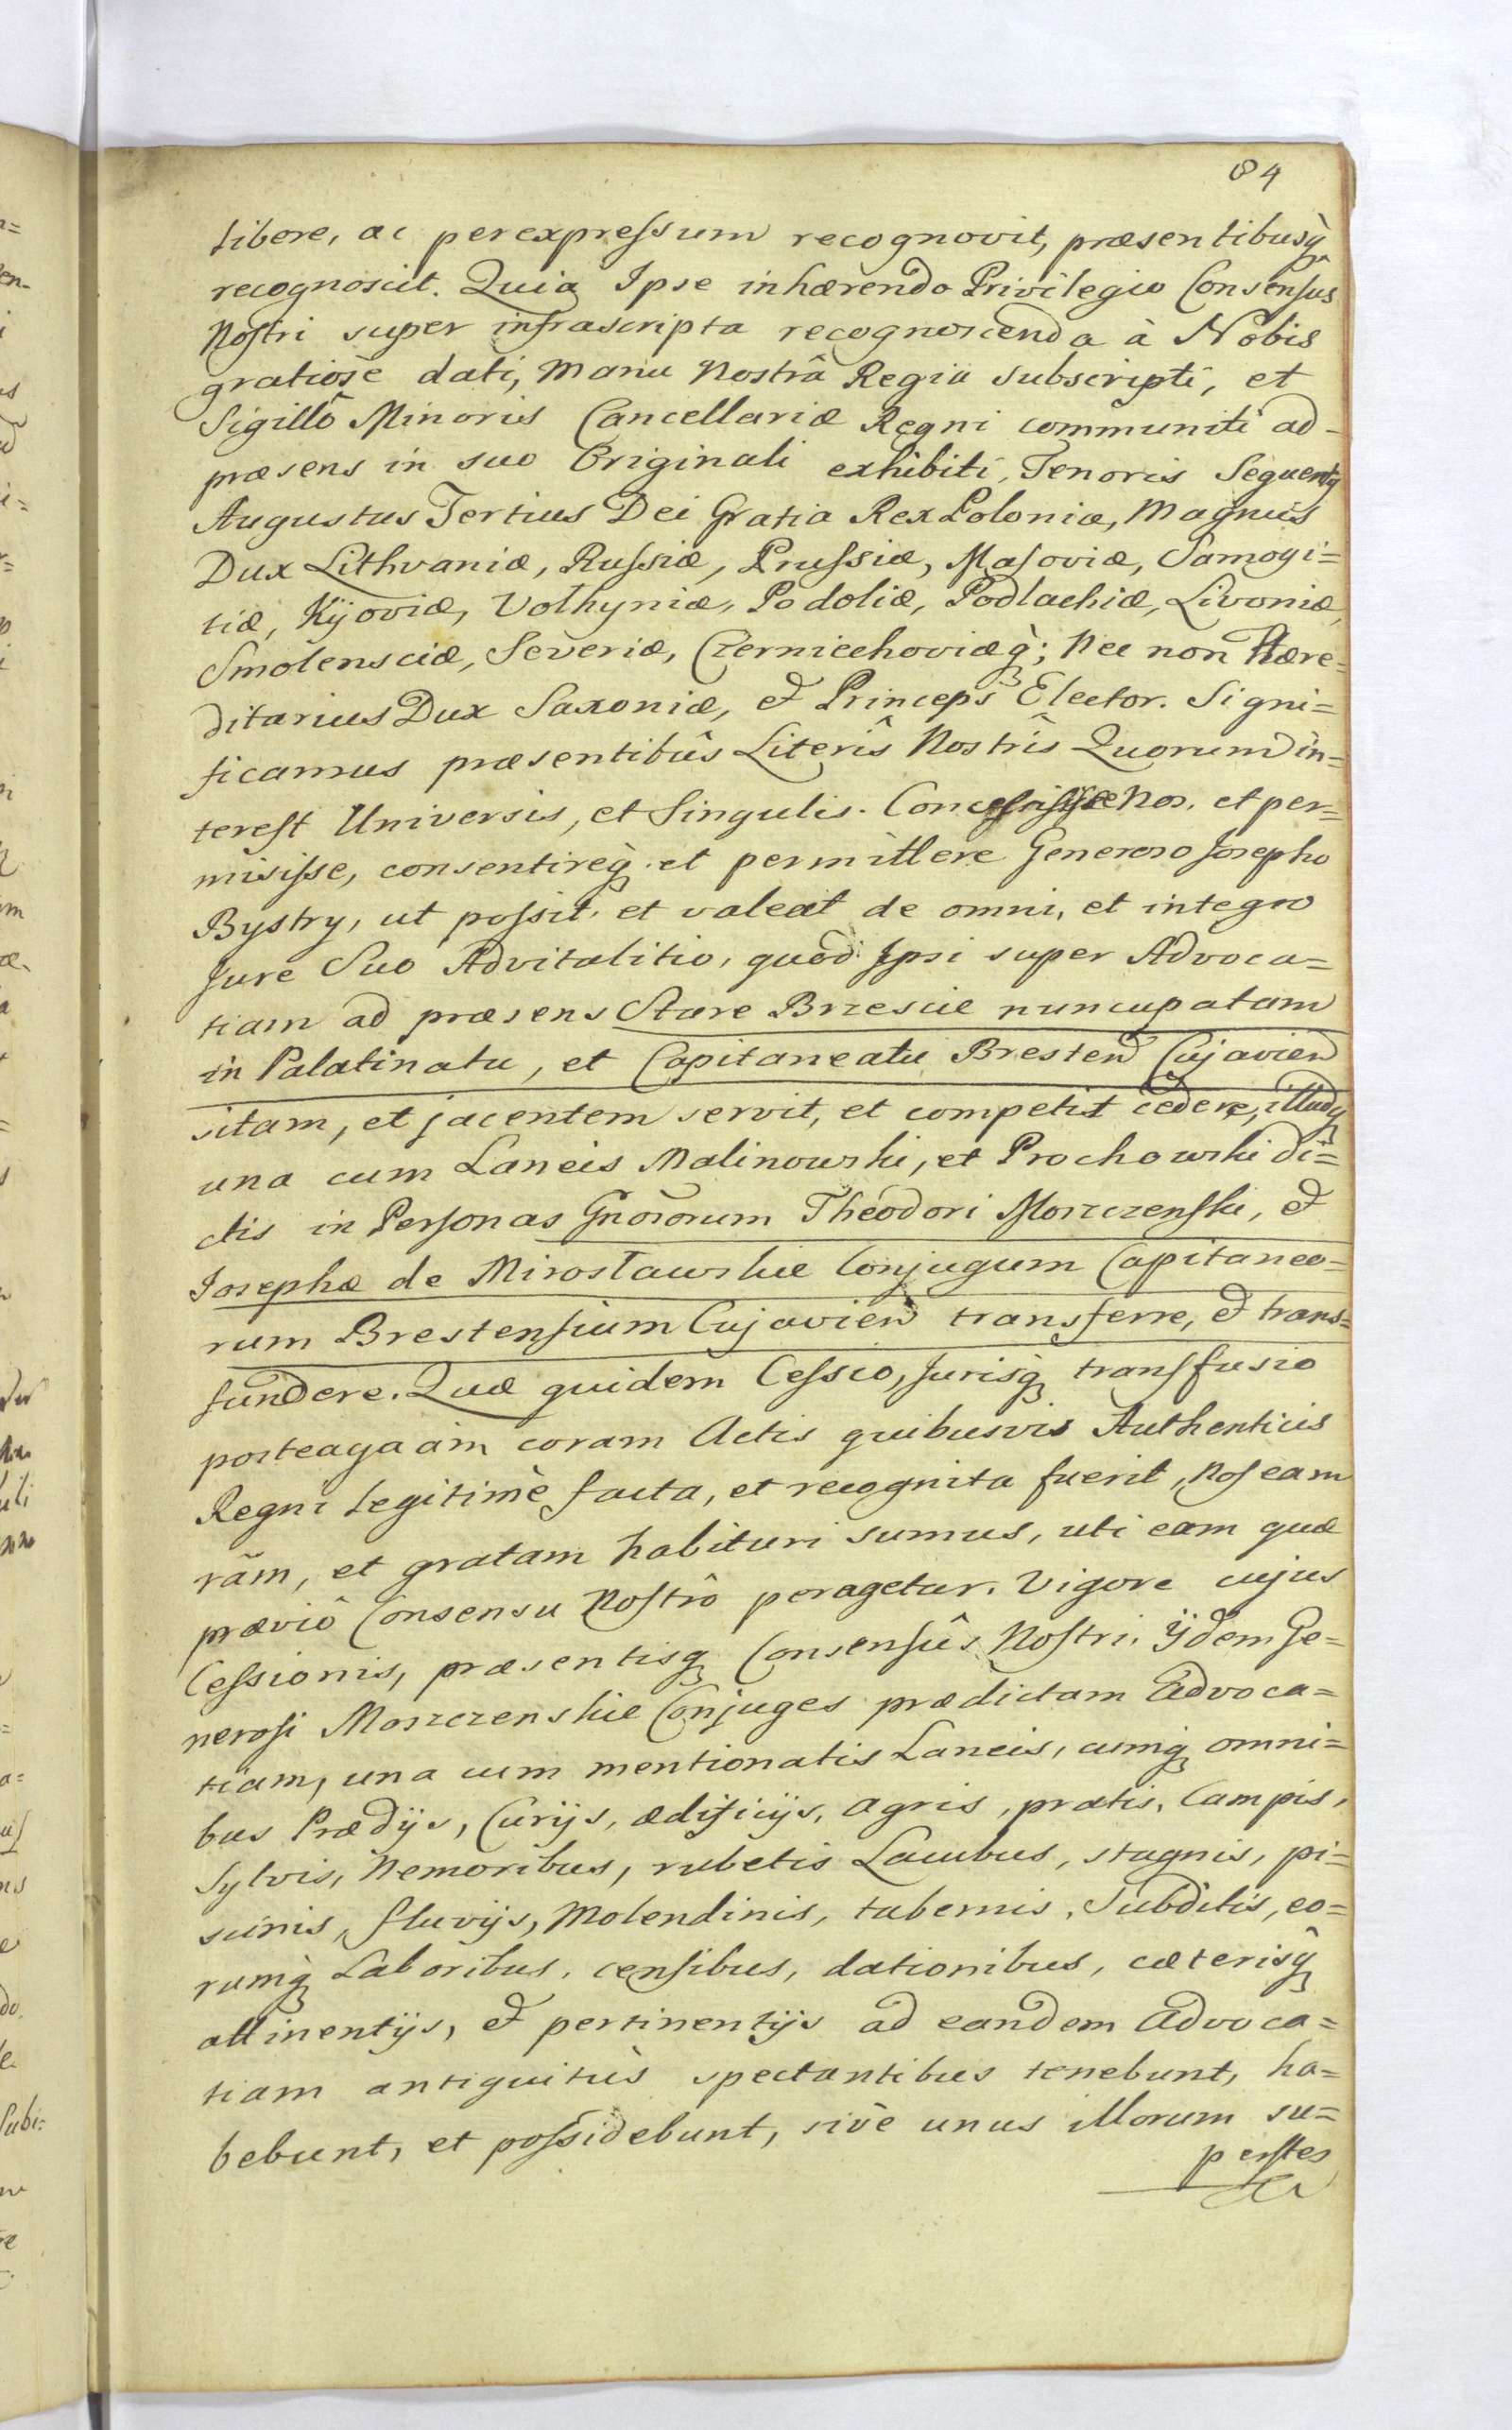 84
libere, ac perexpressum recognovit, præsentibusq̀
recognoscit. Quia Ipse inhærendo Privilegio Consensus
Nostri super infrascripta recognoscenda à Nobis
gratiosè dati, Manu Nostrâ Regia subscripti, et
Sigillô Minoris Cancellariæ Regni communiti ad
præsens in suo Originali exhibiti, Tenoris Sequentq
Augustus Tertius Dei Gratia Rex Poloniæ, Magnus
Dux Lithvaniæ, Russiæ, Prussiæ, Masoviæ, Samogi=
tiæ, Kijoviæ, Volhyniæ, Podoliæ, Podlachiæ, Livoniæ,
Smolensciæ, Severiæ, Czerniechoviæq̀; Nec non Hære=
ditarius Dux Saxoniæ, et Princeps Elector. Signi=
ficamus præsentibûs Literîs Nostrîs Quorum in=
terest Universis, et Singulis. Concessisse Nos, et per=
misisse, consentireq̀ et permittere Generoso Josepho
Bystry, ut possit, et valeat de omni, et integro
Jure Suo Advitalitio, quod Ipsi super Advoca=
tiam ad præsens Stare Brzescie nuncupatam
in Palatinatu, et Capitaneatu Bresten Cujavien
sitam, et jacentem servit, et competit cedere, illudq
una cum Laneis Malinowski, et Prochowski di=
ctis in Personas Gnosorum Theodori Moszczenski, et
Josephæ de Mirosławskie Conjugum Capitaneo=
rum Brestensium Cujavien transferre, et trans=
fundere. Quæ quidem Cessio, Jurisq̀ transfusio
posteaqaam coram Actis quibusvis Authenticis
Regni legitimè facta, et recognita fuerit, Nos eam
rãm, et gratam habituri sumus, uti eam quæ
præviô Consensu Nostrô peragetur. Vigore cujus
Cessionis, præsentisq Consensûs Nostri. Ijdem Ge=
nerosi Moszczenskie Conjuges prædictam Advoca=
tiam, una cum mentionatis Laneis, cumq omni=
bus Prædijs, Curijs, ædificijs, agris, pratis, Campis,
Sylvis, Nemoribus, rubetis Lacubus, stagnis, pi=
scinis, fluvijs, Molendinis, tabernis, Subditis, eo=
rumq̀ Laboribus, censibus, dationibus, cæterisq̀
attinentijs, et pertinentijs ad eandem Advoca=
tiam antiquitùs spectantibus tenebunt, ha=
bebunt, et possidebunt, sivè unus illorum su=
perstes